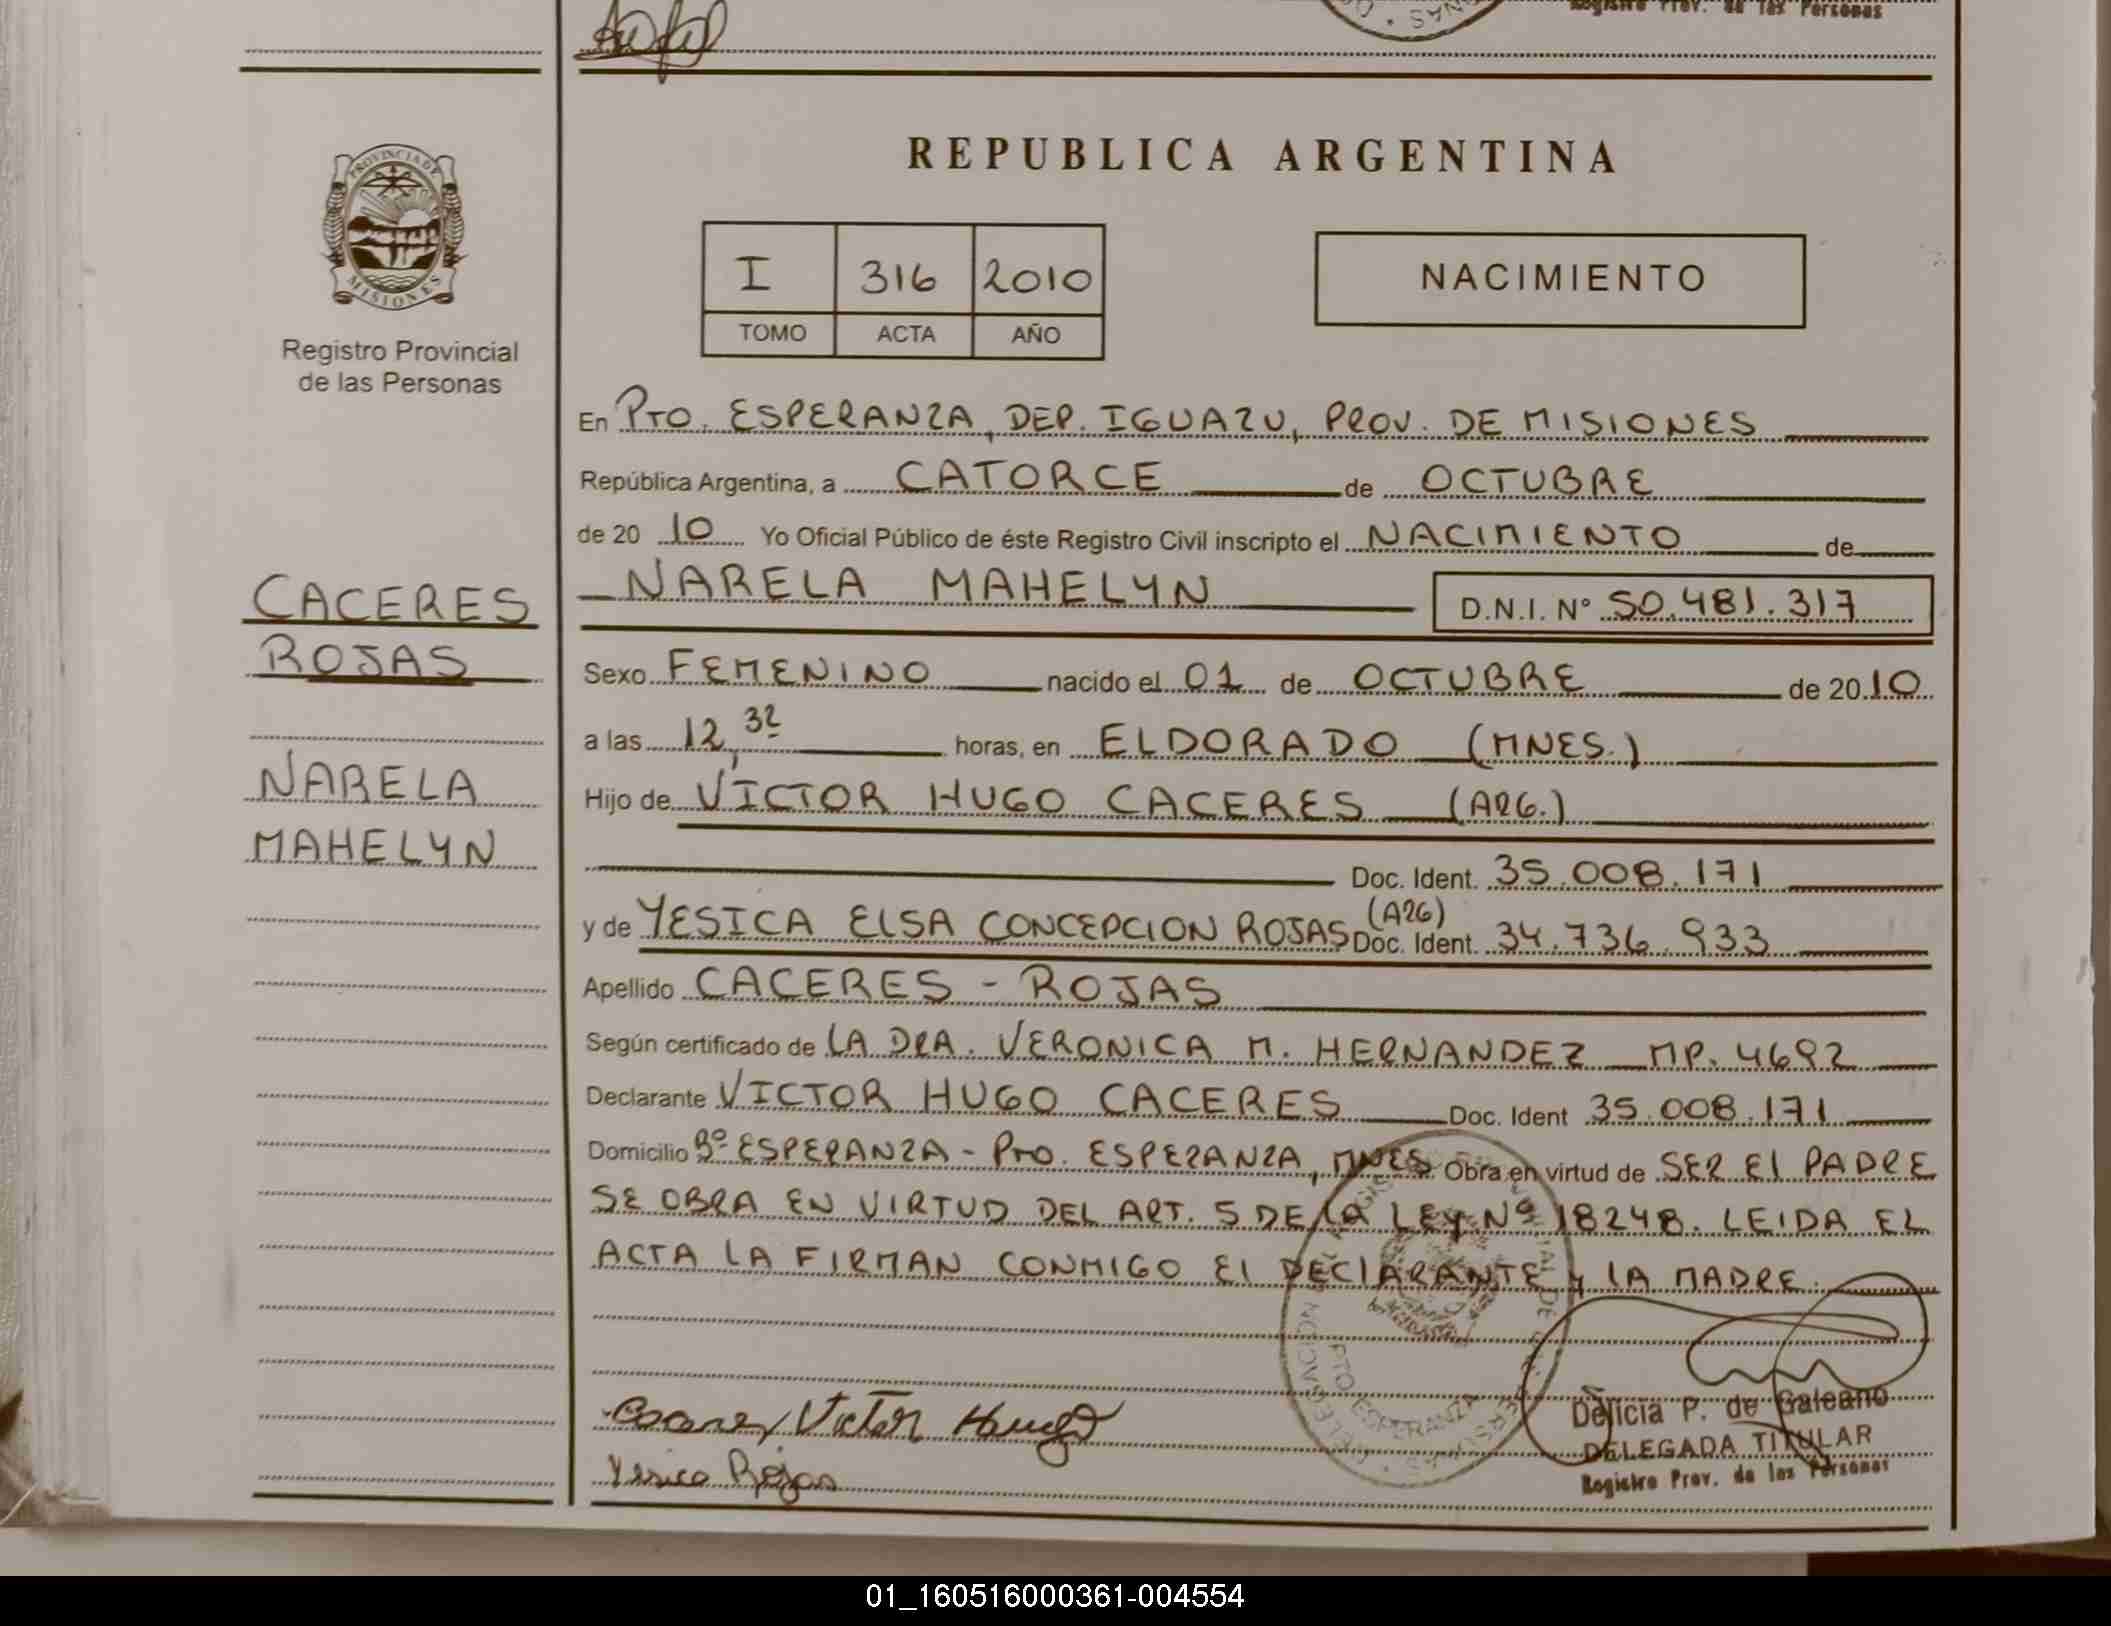 Registro Prov. de las Personas
REPUBLICA ARGENTINA
PROVINCIA DE
MISIONES
Registro Provincial
de las Personas
I 316 2010
TOMO ACTA AÑO
NACIMIENTO
CACERES
ROJAS
NARELA
MAHELYN
En PTO. ESPERANZA, DEP. IGUAZU, PROV. DE MISIONES
República Argentina, a CATORCE de OCTUBRE
de 20 10 Yo Oficial Público de éste Registro Civil inscripto el NACIMIENTO de
NARELA MAHELYN D.N.I. Nº 50.481.317
Sexo FEMENINO nacido el 01 de OCTUBRE de 20 10
a las 12,32 horas, en ELDORADO (MNES.)
Hijo de VICTOR HUGO CACERES (ARG.)
Doc. Ident. 35.008.171
y de YESICA ELSA CONCEPCION ROJAS (ARG) Doc. Ident. 34.736.933
Apellido CACERES - ROJAS
Según certificado de LA DRA. VERONICA M. HERNANDEZ MP. 4692
Declarante VICTOR HUGO CACERES Doc. Ident 35.008.171
Domicilio Bº ESPERANZA - PTO. ESPERANZA, MNES Obra en virtud de SER El PADRE
SE OBRA EN VIRTUD DEL ART. 5 DE LA LEY Nº 18248. LEIDA EL
ACTA LA FIRMAN CONMIGO El DEClARANTE y lA MADRE.
PTO ESPERANZA
Caceres Victor Hugo
Yesica Rojas
Delicia P. de Galeano
DELEGADA TITULAR
Registro Prov. de las Personas
01_160516000361-004554